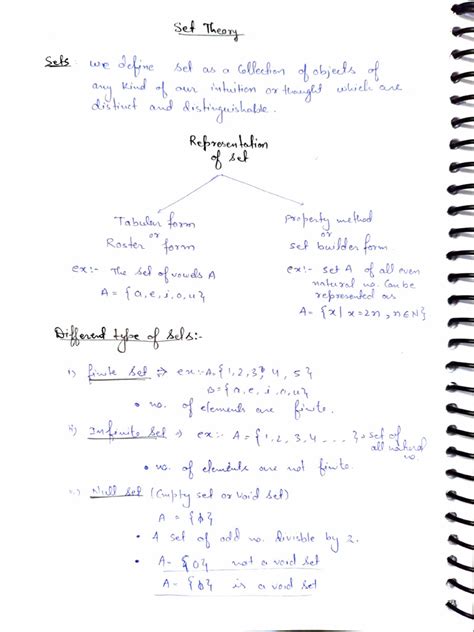 Set Theory
Sets : We define set as a collection of objects of
any kind of our intuition or thought which are
distinct and distinguishable.
Representation
of set
Tabular form
or
Roster form
ex:- The set of vowels A
A = {a, e, i, o, u}
property method
or
set builder form
ex:- set A of all even
natural no. Can be
represented as
A = {x | x = 2n, n ∈ N}
Different type of sets:-
i) finite set → ex:- A = {1, 2, 3, 4, 5}
B = {a, e, i, o, u}
• no. of elements are finite.
ii) Infinite set → ex:- A = {1, 2, 3, 4 ....} → set of
all natural
no.
• no. of elements are not finite.
Null set (Empty set or void set)
A = {ϕ}
• A set of odd no. divisible by 2.
• A = {0} not a void set
A = {ϕ} is a void set